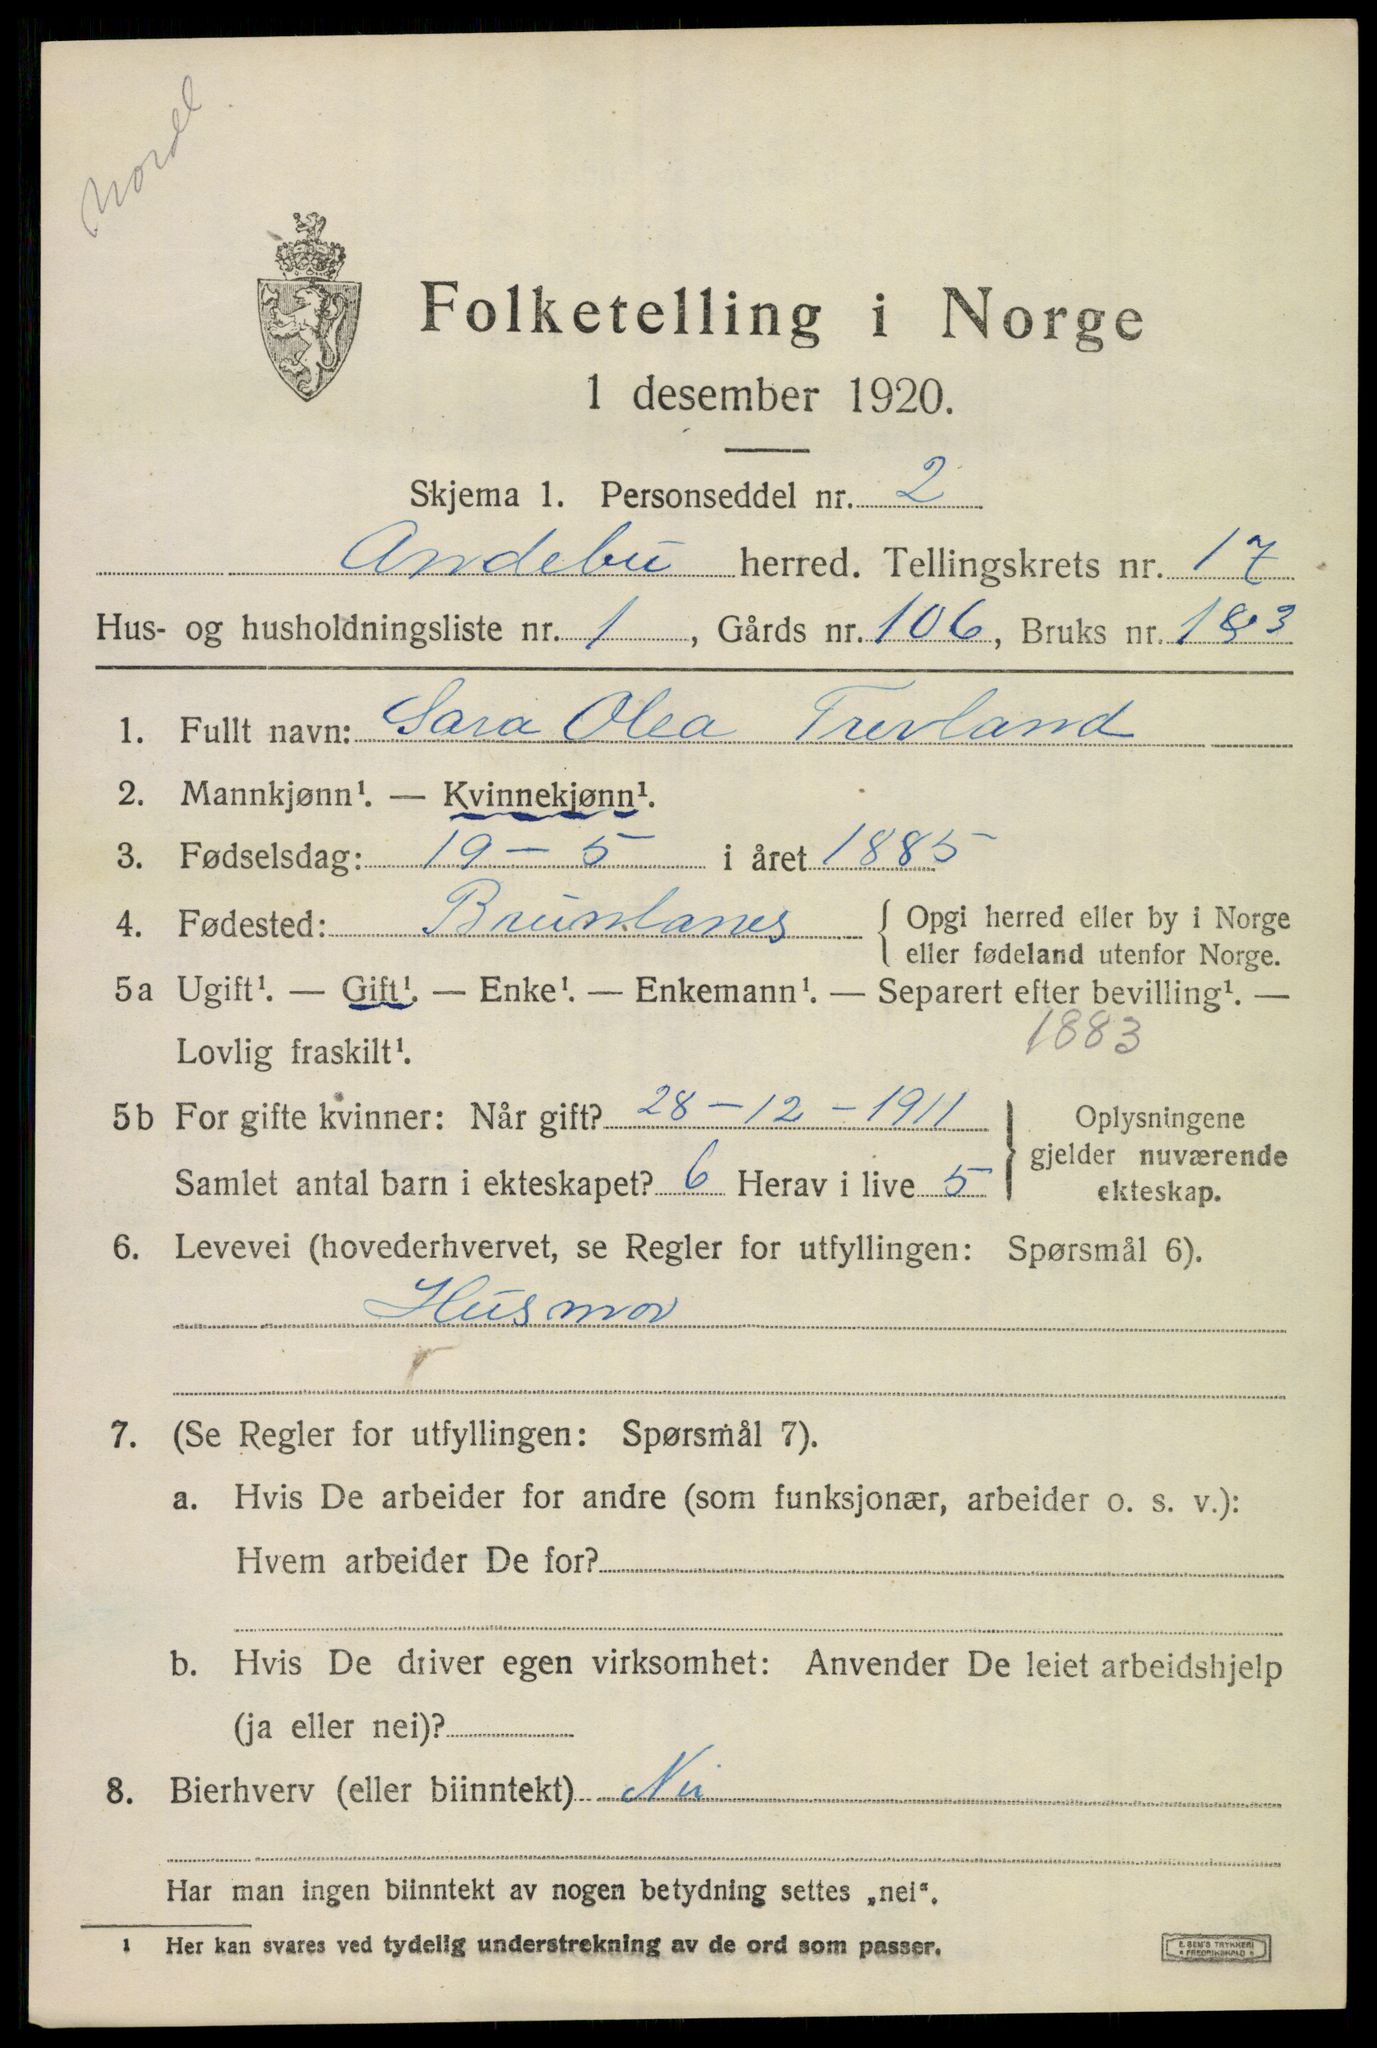 Nordl.
Folketelling i Norge
1 desember 1920.
Skjema 1. Personseddel nr. 2
Andebu herred. Tellingskrets nr. 17
Hus- og husholdningsliste nr. 1, Gårds nr. 106, Bruks nr. 1&3
1. Fullt navn: Sara Olea Trevland
2. Mannkjønn¹. — Kvinnekjønn¹.
3. Fødselsdag: 19 – 5 i året 1885
4. Fødested: Brunlanes { Opgi herred eller by i Norge
eller fødeland utenfor Norge.
5a Ugift¹. — Gift¹. — Enke¹. — Enkemann¹. — Separert efter bevilling¹. —
Lovlig fraskilt¹. 1883
5b For gifte kvinner: Når gift? 28 – 12 – 1911
Samlet antal barn i ekteskapet? 6 Herav i live 5
} Oplysningene
gjelder nuværende
ekteskap.
6. Levevei (hovederhvervet, se Regler for utfyllingen: Spørsmål 6).
Husmor
7. (Se Regler for utfyllingen: Spørsmål 7).
a. Hvis De arbeider for andre (som funksjonær, arbeider o. s. v.):
Hvem arbeider De for?
b. Hvis De driver egen virksomhet: Anvender De leiet arbeidshjelp
(ja eller nei)?
8. Bierhverv (eller biinntekt) Nei
Har man ingen biinntekt av nogen betydning settes „nei“.
1 Her kan svares ved tydelig understrekning av de ord som passer.
E. SEM'S TRYKKERI
FREDRIKSHALD